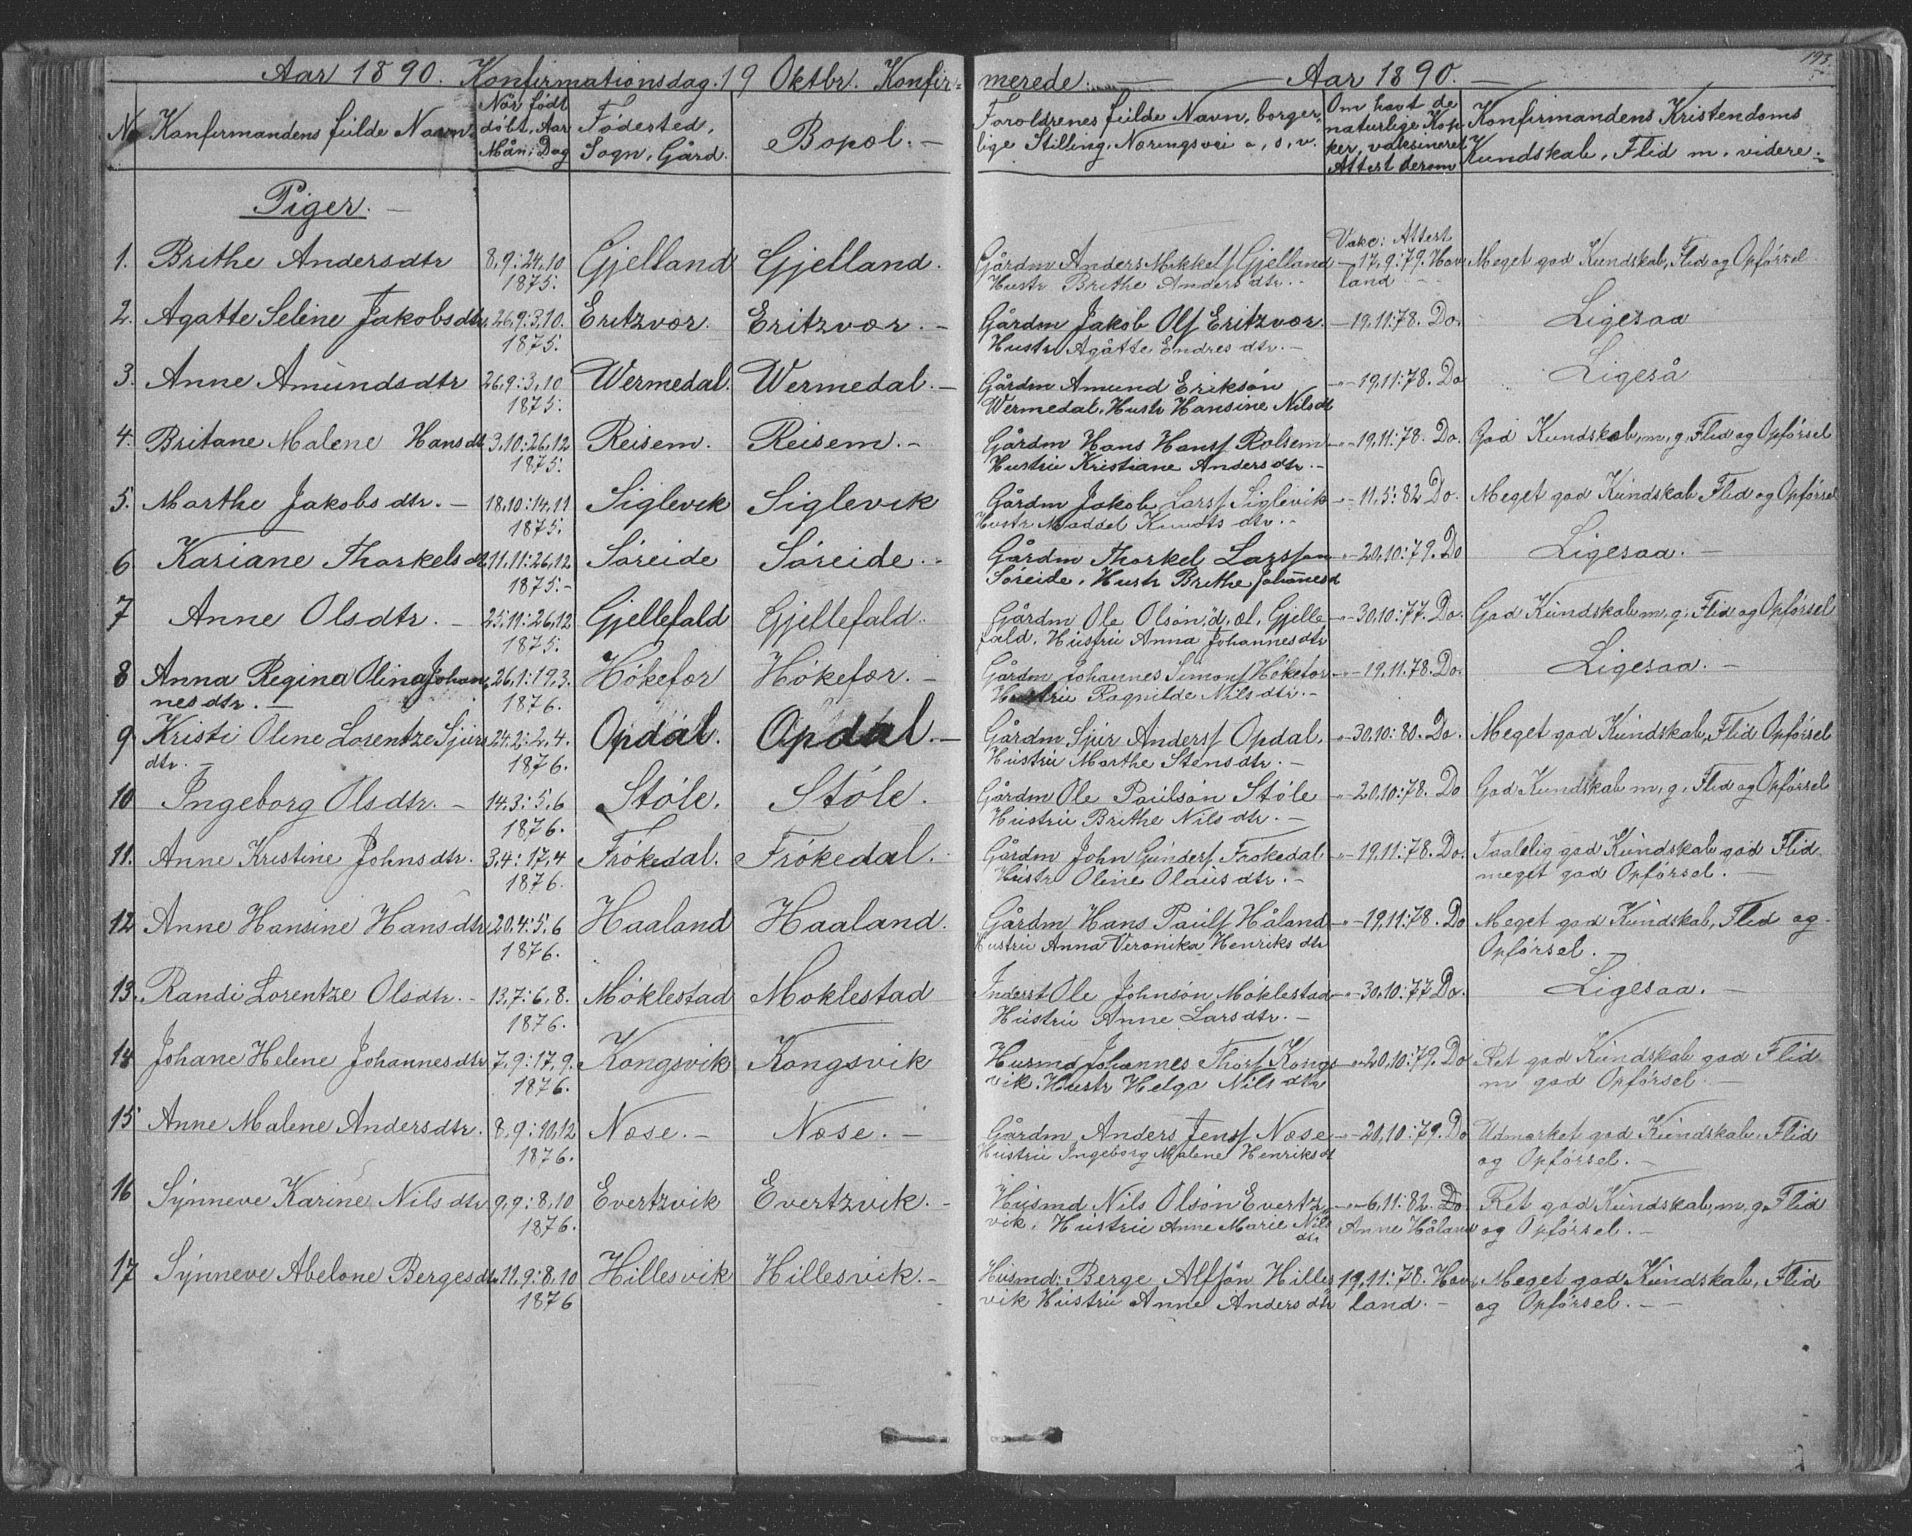 Aar 1890. Konfirmationsdag. 19 Oktbr. Konfir-
No Konfirmandens fulde Navn.
Når født døbt, Aar Mån; Dag
Fødested, Sogn, Gård.
Bopæl. –
Piger. –
1. Brithe Andersdtr 8,9:24,10 Gjelland Gjelland.
1875.
2. Agatte Seline Jakobsdtr. 26,9:3,10. Eritzvær. Eritzvær. –
1875.
3. Anne Amundsdtr 26,9:3,10 Wermedal. Wermedal. –
1875.
4. Britane Malene Hansdtr 3,10:26,12 Reisem. Reisem. –
1875.
5. Marthe Jakobsdtr. – 18,10:14,11 Siglevik Siglevik
1875.
6 Kariane Thorkelsdtr. 11,11:26,12 Søreide Søreide. –
1875. –
7 Anne Olsdtr. – 25,11:26,12 Gjellefald Gjellefald.
1875.
8 Anna Regina Olina Johan 26,1:19,3. Høkefær Høkefær. –
nesdtr. – 1876.
9 Kristi Oline Lorentze Sjurs 24,2:2,4. Opdal. Opdal. –
dtr. – 1876.
10 Ingeborg Olsdtr. – 14,3:5,6 Støle. Støle.
1876.
11. Anne Kristine Johnsdtr. 3,4:17,4 Frøkedal. Frøkedal.
1876.
12 Anne Hansine Hansdtr 20,4:5,6 Haaland Haaland.
1876.
13. Randi Lorentze Olsdtr. – 13,7:6,8. Møklestad Møklestad
1876.
14 Johane Helene Johannesdtr 7,9:17,9. Kongsvik Kongsvik
1876.
15 Anne Malene Andersdtr. 8,9:10,12 Næse. – Næse. –
1876.
16 Synneve Karine Nilsdtr 9,9:8,10 Evertzvik Evertzvik. –
1876.
17 Synneve Abelone Bergesdtr 11,9:8,10 Hillesvik Hillesvik. –
1876
193
merede. — Aar 1890. –
Foreldrenes fulde Navn, borger-
lige Stilling, Næringsvei o, s, v.
Om havt de
naturlige Kop-
ker, vaksineret
Attest derom
Konfirmandens Kristendoms
Kundskab, Flid m. videre. –
Vakc: Attest
Gårdm Anders Mikkels Gjelland – 17,9:79. Hov Meget god Kundskab, Flid og Opførsel
Hustr Brithe Andersdtr. – land –
Gårdm Jakob Ols Eritzvær. – 19,11:78. Do. Ligesaa
Hustr Agåtte Endresdtr. –
Gårdm Amund Eriksøn – 19,11:78. Do Ligeså
Wermedal. Hustr Hansine Nilsdt
Gårdm Hans Hans – 19,11:78. Do. God Kundskab, m, g, Flid og Opførsel
Hustru Kristiane Andersdtr. –
Gårdm Jakob Lars Siglevik – 11,5:82 Do. Meget god Kundskab Flid og Opførsel
Hustr Maddel Knudtsdtr. –
Gårdm Thorkel Larsson – 20,10:79. Do Ligesaa. –
Søreide. Hustr Brithe Johannesd
Gårdm Ole Olsøn, d, æl, Gjelle – 30,10:77. Do. God Kundskab m, g, Flid og Opførsel
fald. Hustru Anna Johannesdtr
Gårdm Johannes Simons Høkefær – 19,11:78. Do. Ligesaa. –
Hustru Ragnilde Nilsdtr. –
Gårdm Sjur Anders Opdal. – 30,10:80. Do. Meget god Kundskab, Flid Opførsel
Hustru Marthe Stensdtr. –
Gårdm Ole Paulsøn Støle – 20,10:78. Do God Kundskab m, g, Flid og Opførsel
Hustru Brithe Nilsdtr. –
Gårdm John Gunders Frøkedal – 19,11:78. Do. Taalelig god Kundskab god Flid
Hustr Oline Olausdtr. – meget god Opførsel. –
Gårdm Hans Pauls Håland – 19,11:78. Do Meget god Kundskab, Flid og
Hustru Anna Veronika Henriksdtr Opførsel. –
Inderst Ole Johnsøn Møklestad – 30,10:77 Do. Ligesaa. –
Hustru Anne Larsdtr. –
Husmd Johannes Thors Kongs – 20,10:79. Do Ret god Kundskab god Flid
vik. Hustr Helga Nilsdtr m god Opførsel. –
Gårdm Anders Jens Næse – 20,10:79. Do Udmærket god Kundskab, Flid
Hustru Ingeborg Malene Henriksdt og Opførsel. –
Husmd Nils Olsøn Evertz – 6,11:82. Do Ret god Kundskab, m, g, Flid
vik, Hustru Anne Marie Nils Anne Håland og Opførsel. –
dtr
Husmd: Berge Alfsøn Hilles 19,11:78. Hov Meget god Kundskab, Flid
vik Hustru Anne Andersdtr land. – og Opførsel. –